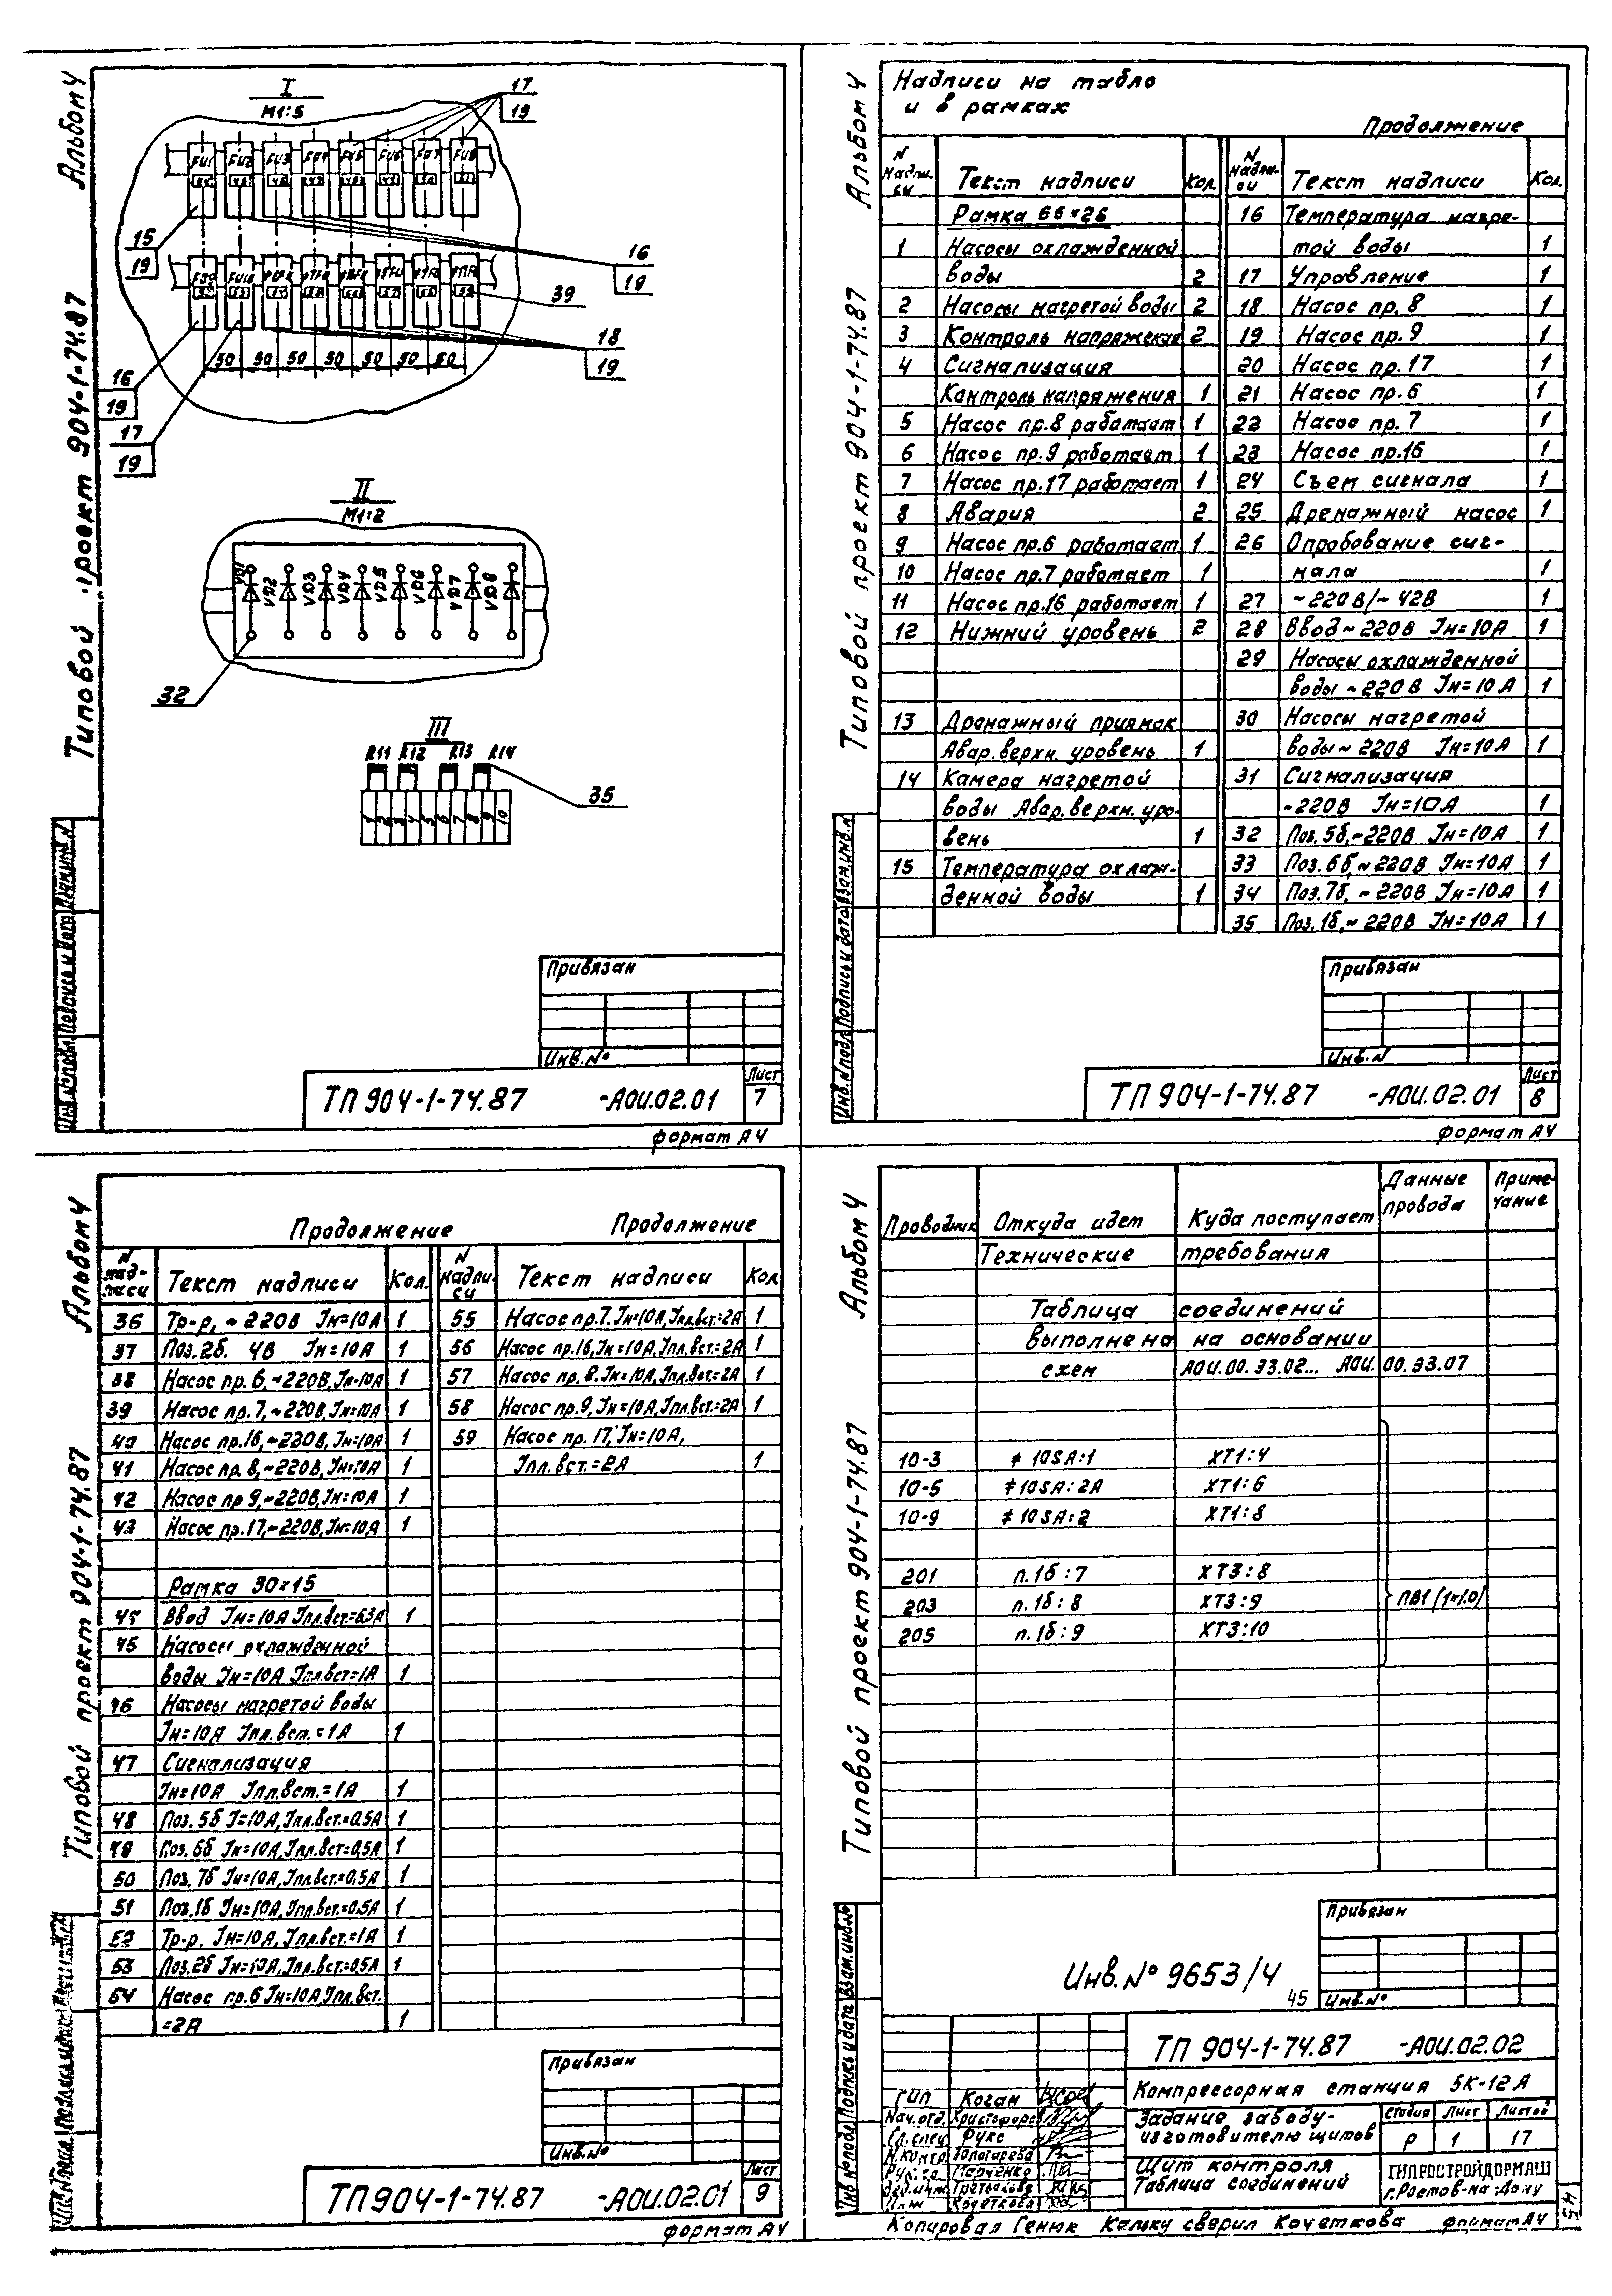 Альбом 4
Типовой проект 904-1-74.87
I
М1:5
17
19
FU1 FU2 FU3 FU4 FU5 FU6 FU7 FU8
15
19
16
19
39
18
19
50 50 50 50 50 50 50
16
19
17
19
II
М1:2
VD1 VD2 VD3 VD4 VD5 VD6 VD7 VD8
32
III
R11 R12 R13 R14
35
1 2 3 4 5 6 7 8 9 10
Привязан
Инв.№
ТП 904-1-74.87 -АОИ.02.01
Лист
7
формат А4
Альбом 4
Типовой проект 904-1-74.87
Надписи на табло
и в рамках
Продолжение
N надписи Текст надписи Кол. N надписи Текст надписи Кол.
Рамка 66×26
1 Насосы охлажденной
воды 2
2 Насосы нагретой воды 2
3 Контроль напряжения 2
4 Сигнализация
Контроль напряжения 1
5 Насос пр.8 работает 1
6 Насос пр.9 работает 1
7 Насос пр.17 работает 1
8 Авария 2
9 Насос пр.6 работает 1
10 Насос пр.7 работает 1
11 Насос пр.16 работает 1
12 Нижний уровень 2
13 Дренажный приямок
Авар.верхн. уровень 1
14 Камера нагретой
воды Авар.верхн. уро-
вень 1
15 Температура охлаж-
денной воды 1
16 Температура нагре-
той воды 1
17 Управление 1
18 Насос пр. 8 1
19 Насос пр. 9 1
20 Насос пр. 17 1
21 Насос пр. 6 1
22 Насос пр. 7 1
23 Насос пр.16 1
24 Съем сигнала 1
25 Дренажный насос 1
26 Опробование сиг-
нала 1
27 ~220В/~42В 1
28 Ввод ~220В Iн=10А 1
29 Насосы охлажденной
воды ~220В Iн=10А 1
30 Насосы нагретой
воды ~220В Iн=10А 1
31 Сигнализация
~220В Iн=10А 1
32 Поз. 5б,~220В Iн=10А 1
33 Поз. 6б,~220В Iн=10А 1
34 Поз. 7б,~220В Iн=10А 1
35 Поз. 1б,~220В Iн=10А 1
Инв.№подл. Подпись и дата Взам.инв.№
Привязан
Инв.№
ТП 904-1-74.87 -АОИ.02.01
Лист
8
формат А4
Альбом 4
Типовой проект 904-1-74.87
Продолжение Продолжение
N надписи Текст надписи Кол. N надписи Текст надписи Кол
36 Тр-р, ~220В Iн=10А 1
37 Поз. 2б. 4В Iн=10А 1
38 Насос пр. 6,~220В, Iн=10А 1
39 Насос пр. 7,~220В, Iн=10А 1
40 Насос пр.16,~220В, Iн=10А 1
41 Насос пр. 8,~220В, Iн=10А 1
42 Насос пр 9,~220В, Iн=10А 1
43 Насос пр.17,~220В, Iн=10А 1
Рамка 30×15
Ввод Iн=10А Iпл.вст=6.3А 1
45 Насосы охлажденной
воды Iн=10А Iпл.вст=1А 1
46 Насосы нагретой воды
Iн=10А Iпл.вст.=1А 1
47 Сигнализация
Iн=10А Iпл.вст.=1А 1
48 Поз. 5б I=10А, Iпл.вст.=0.5А 1
49 Поз. 6б Iн=10А, Iпл.вст=0,5А 1
50 Поз. 7б Iн=10А, Iпл.вст=0.5А 1
51 Поз. 1б Iн=10А, Iпл.вст.=0.5А 1
52 Тр-р. Iн=10А, Iпл.вст.=1А 1
53 Поз.2б Iн=10А, Iпл.вст.=0,5А 1
54 Насос пр.6 Iн=10А, Iпл.вст.
=2А 1
55 Насос пр.7. Iн=10А, Iпл.вст.=2А 1
56 Насос пр.16, Iн=10А, Iпл.вст.=2А 1
57 Насос пр. 8. Iн=10А, Iпл.вст.=2А 1
58 Насос пр.9, Iн=10А, Iпл.вст.=2А 1
59 Насос пр. 17, Iн=10А,
Iпл.вст.=2А 1
Привязан
Инв.№
ТП 904-1-74.87 -АОИ.02.01
Лист
9
формат А4
Альбом 4
Типовой проект 904-1-74.87
Проводник Откуда идет Куда поступает Данные провода Примечание
Технические требования
Таблица соединений
выполнена на основании
схем АОИ.00.ЭЗ.02... АОИ.00.ЭЗ.07
10-3 ≠ 10SA:1 XT1:4
10-5 ≠ 10SA:2А XT1:6
10-9 ≠ 10SA:2 XT1:8
201 п.1б:7 XT3:8
203 п.1б:8 XT3:9 ПВ1 (1×1.0)
205 п.1б:9 XT3:10
Привязан
Инв.№ 9653/4
45
Инв.№
Инв №подл. Подпись и дата Взам.инв№
ТП 904-1-74.87 -АОИ.02.02
Компрессорная станция 5К-12А
ГИП Коган
Нач.отд. Христофоров
Гл.спец Фукс
Н.контр.
Рук.гр. Марченко
Вед.инж. Третьякова
Инж Кочеткова
Задание заводу-
изготовителю щитов
Стадия Лист Листов
Р 1 17
Щит контроля
Таблица соединений
ГИПРОСТРОЙДОРМАШ
г.Ростов-на-Дону
Копировал Генюк Кальку сверил Кочеткова формат А4
45